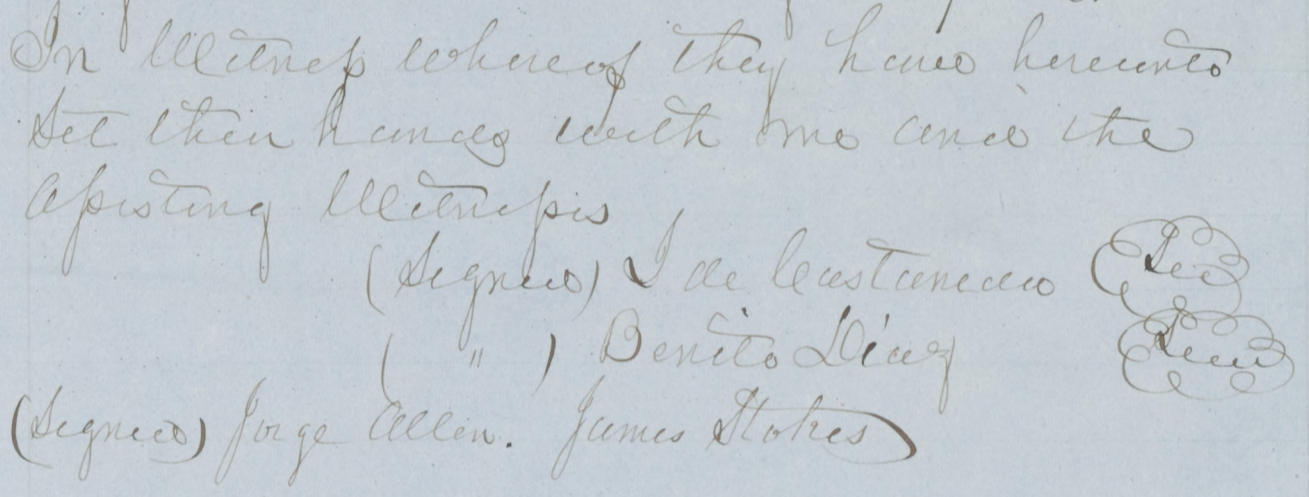 In Witness whereof they have hereunto
set their hands with me and the
Assisting Witnesses
(Signed) J de Castanedo Seal
( " ) Benito Diaz Seal
(Signed) Jorge Allen. James Stokes